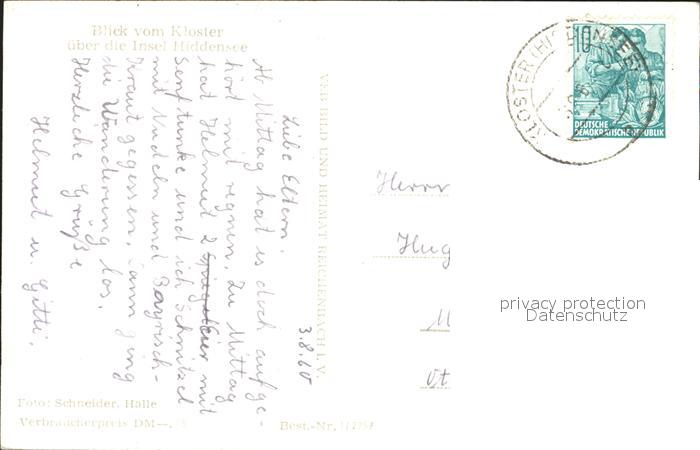 Blick vom Kloster
über die Insel Hiddensee
3.8.60
Liebe Eltern!
Ab Mittag hat es doch aufge-
hört mit regnen. Zu Mittag
hat Helmut 2 Eier mit
Senftunke und ich Schnitzel
mit Nudeln und Bayrisch-
Kraut gegessen. Dann ging
die Wanderung los.
Herzliche Grüße
Helmut u. Gitti.
Foto: Schneider, Halle
Verbraucherpreis DM
Best.-Nr.
VEB BILD UND HEIMAT REICHENBACH I. V.
KLOSTER (HIDDENSEE)
10
DEUTSCHE
DEMOKRATISCHE REPUBLIK
Herrn
Hug
M
privacy protection
Datenschutz